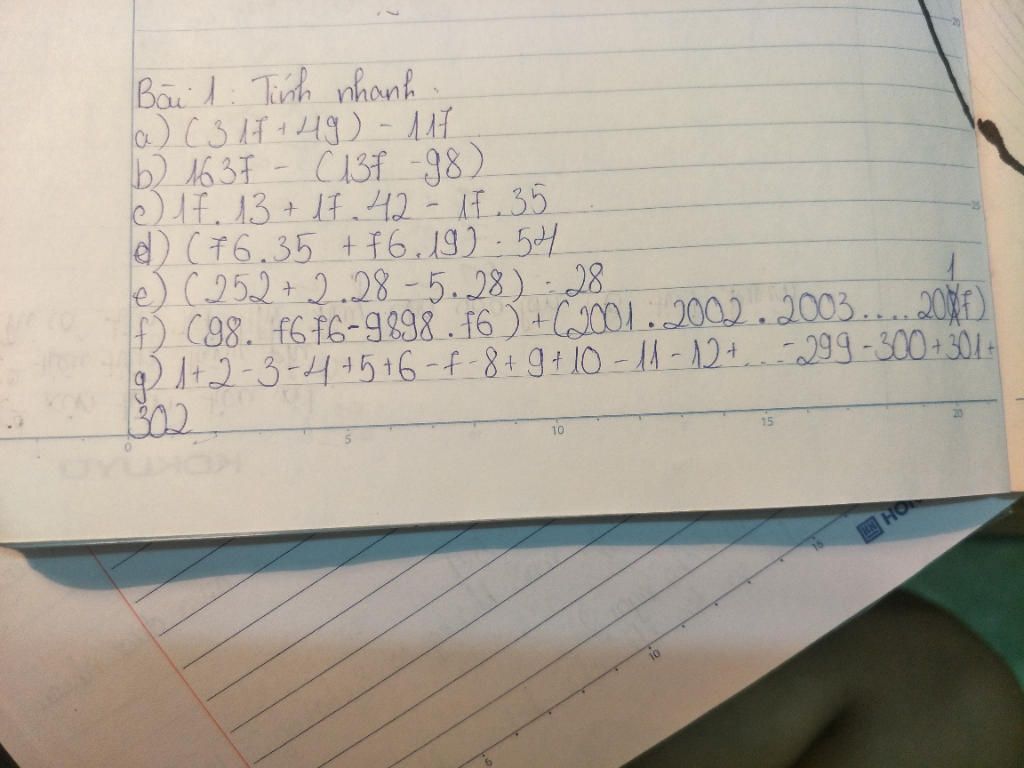 Bài 1: Tính nhanh.
a) (317 + 49) - 117
b) 1637 - (137 - 98)
c) 17.13 + 17.42 - 17.35
d) (76.35 + 76.19) : 54
e) (252 + 2.28 - 5.28) : 28
f) (98.7676 - 9898.76) + (2001.2002.2003....2017)
g) 1+2-3-4+5+6-7-8+9+10-11-12+...-299-300+301+
302
0 5 10 15 20
KOKUYO
15
10
5
20
25